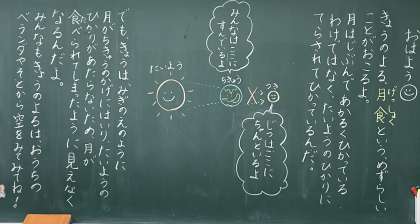 おはよ
きょうのよる、月食というめずらしい
げっしょく
ことがおこるよ。
月はじぶんであかるくひかっている
わけではなく、たいようのひかりに
てらされてひかっているんだ。
みんなはここに
すんでいるよ
たいよう
ちきゅう
つき
じつはここに
ちゃんといるよ
でも、きょうはみぎのえのように
月がちきゅうのかげにはいり、たいようの
ひかりがあたらなくなるため、月が
食べられてしまったように見えなく
なるんだよ。
みんなもきょうのよるはおうちの
ベランダやそとから空をみてみてね!